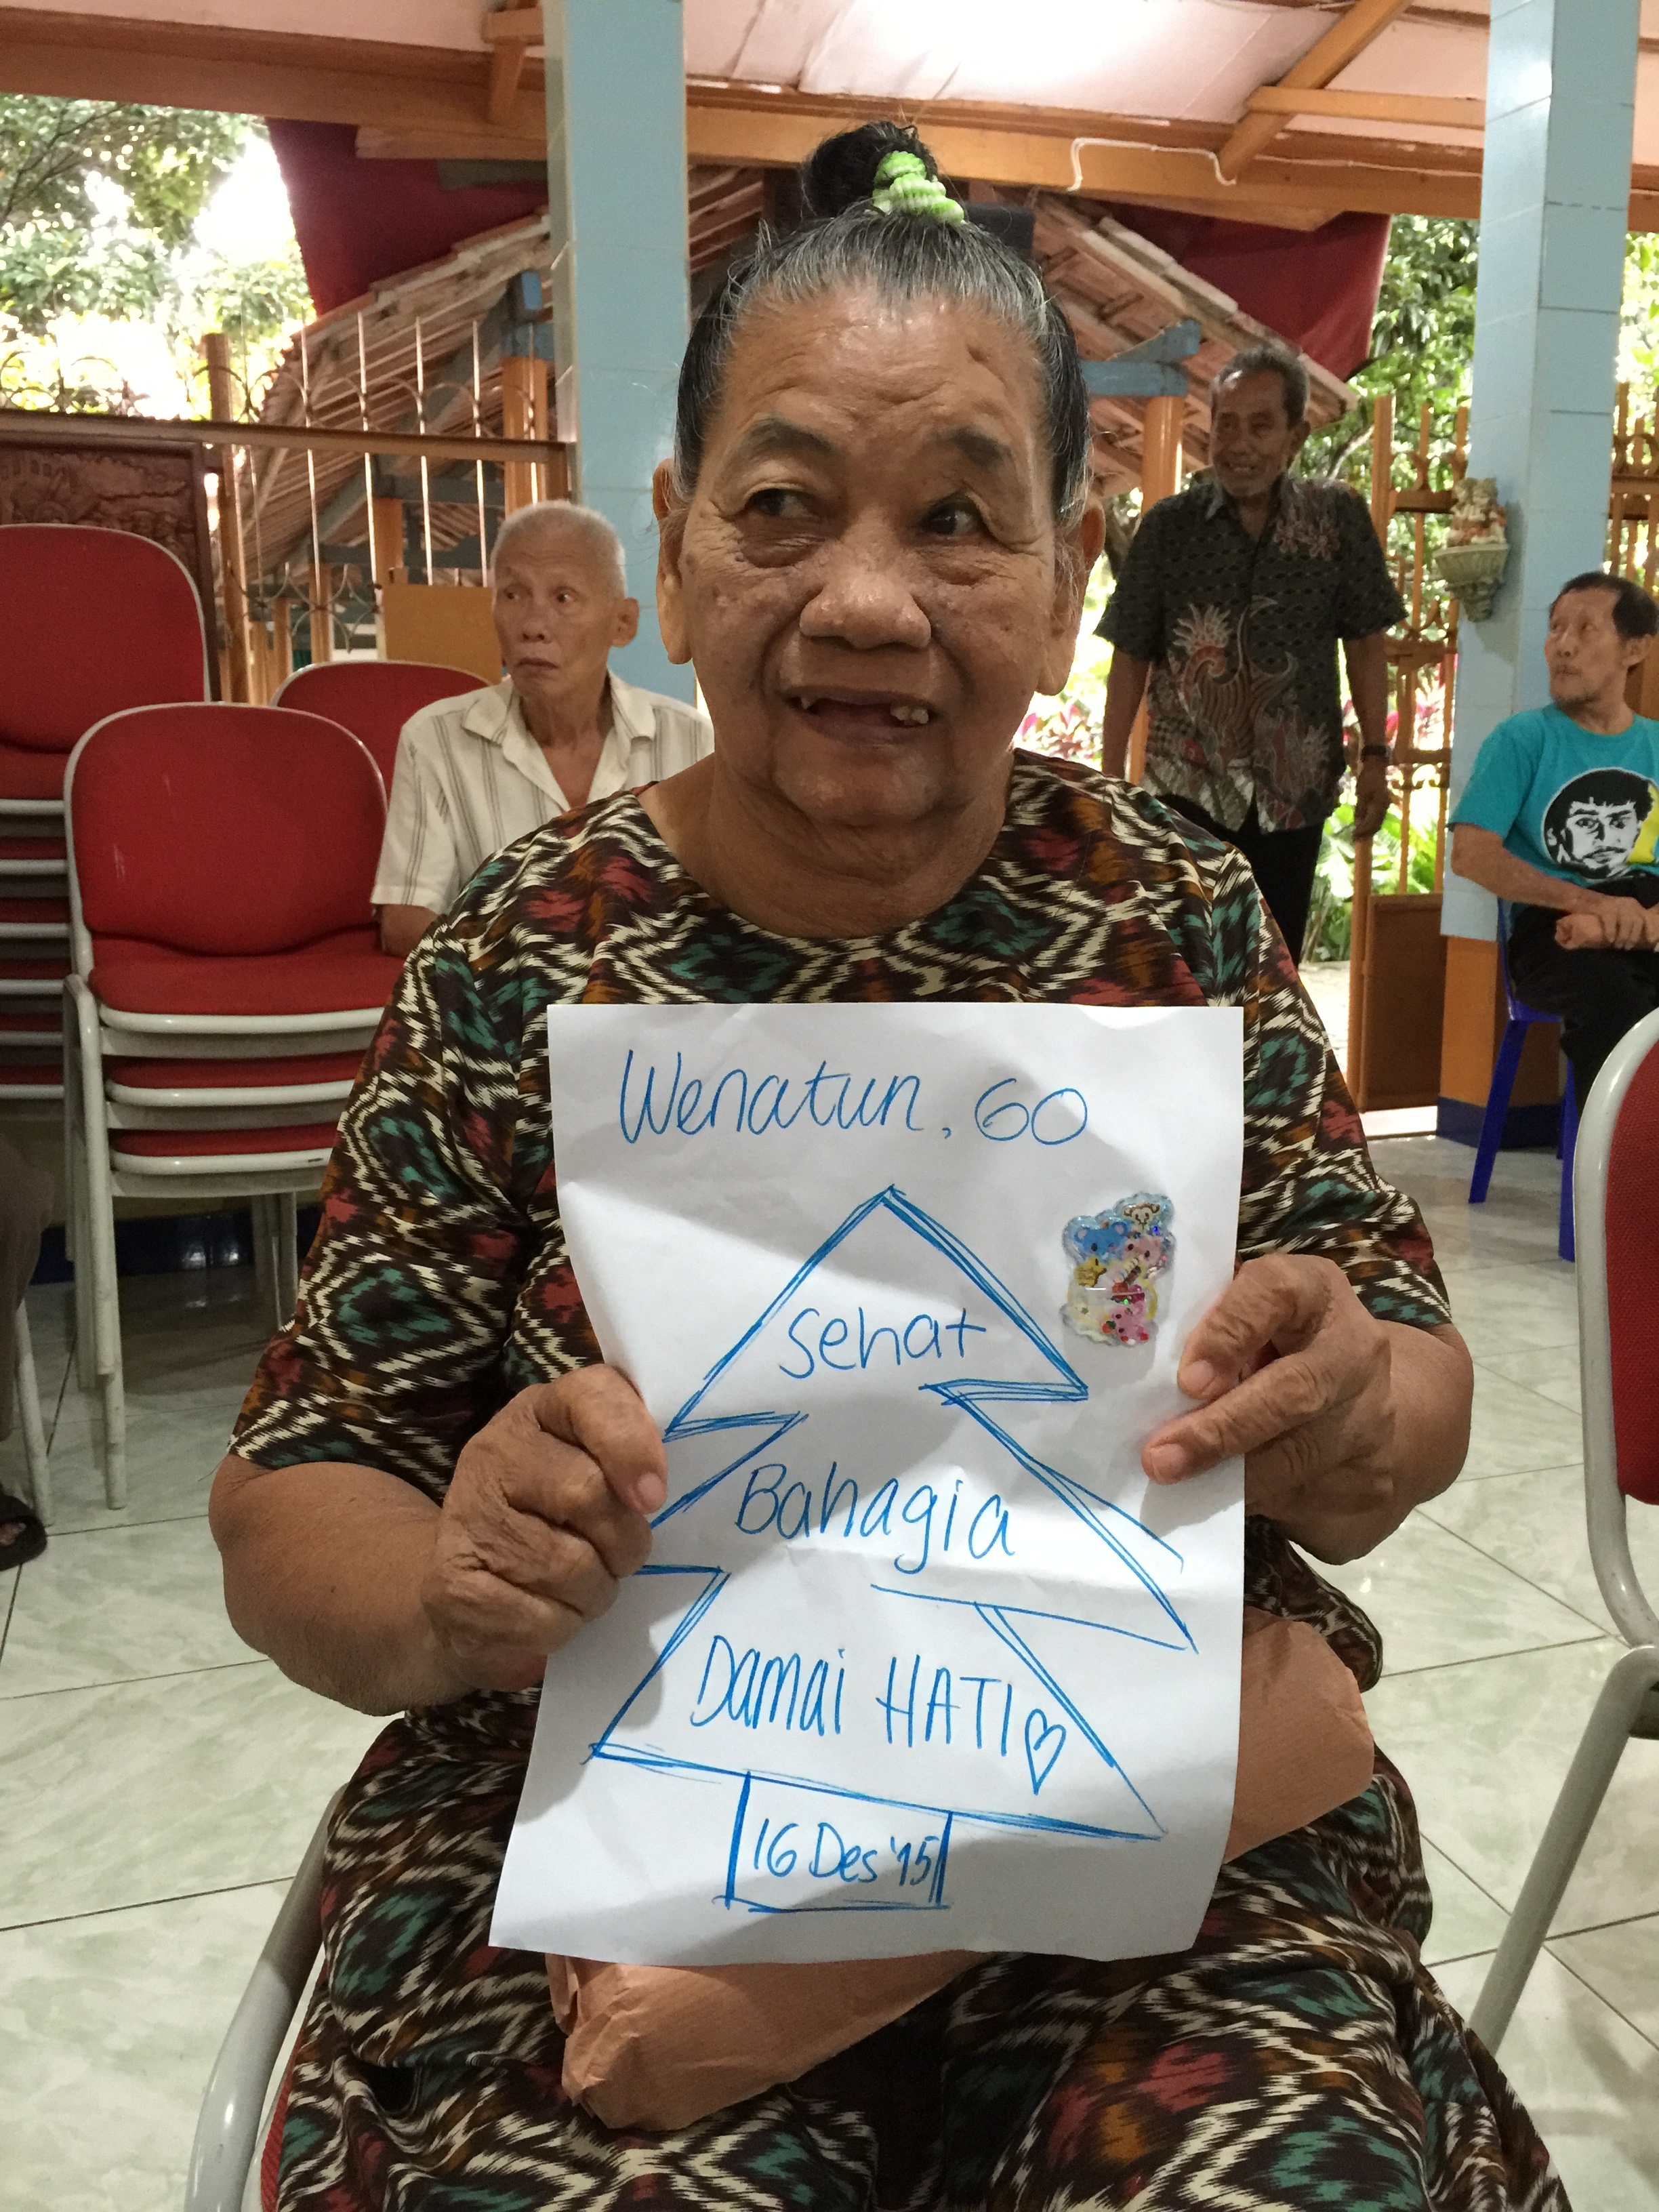 Wenatun, 60
Sehat
Bahagia
Damai HATI
16 Des '15